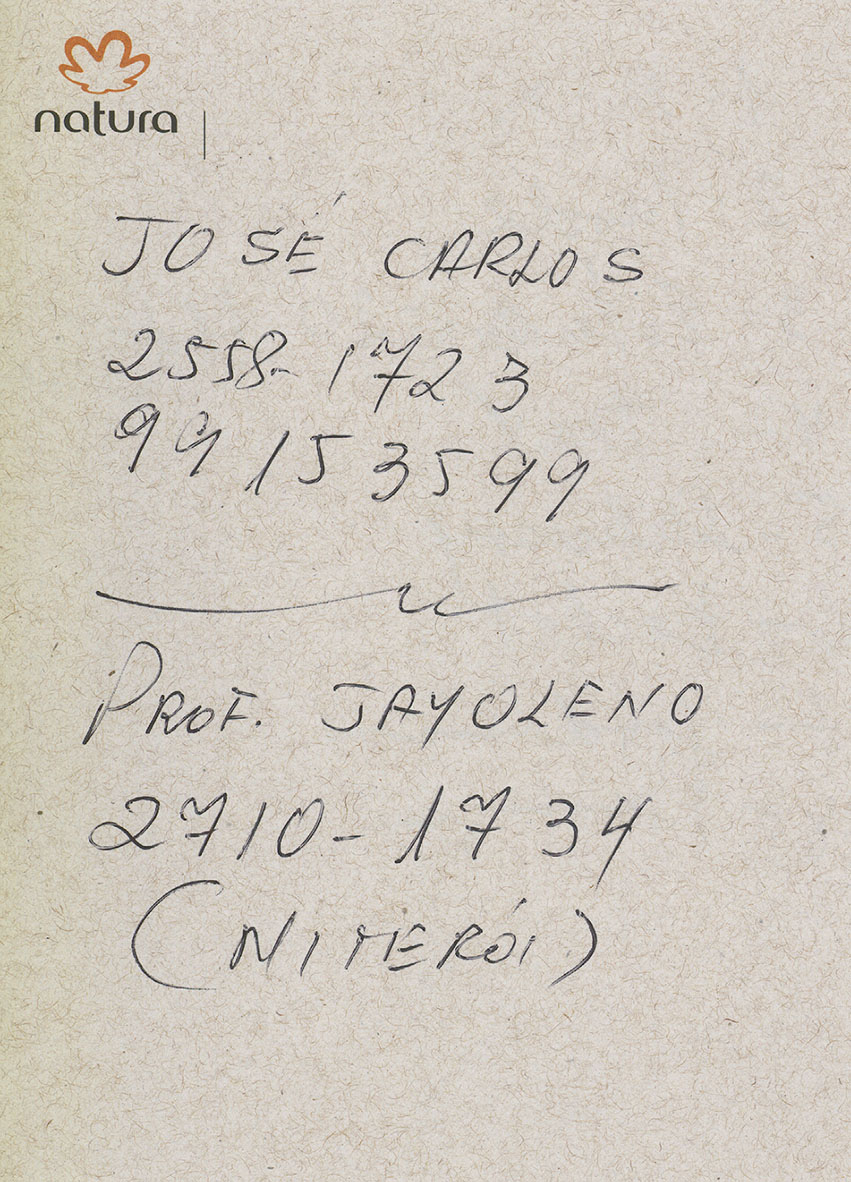 natura
JOSÉ CARLOS
2558-1723
99153599
PROF. JAYOLENO
2710-1734
(NITERÓI)